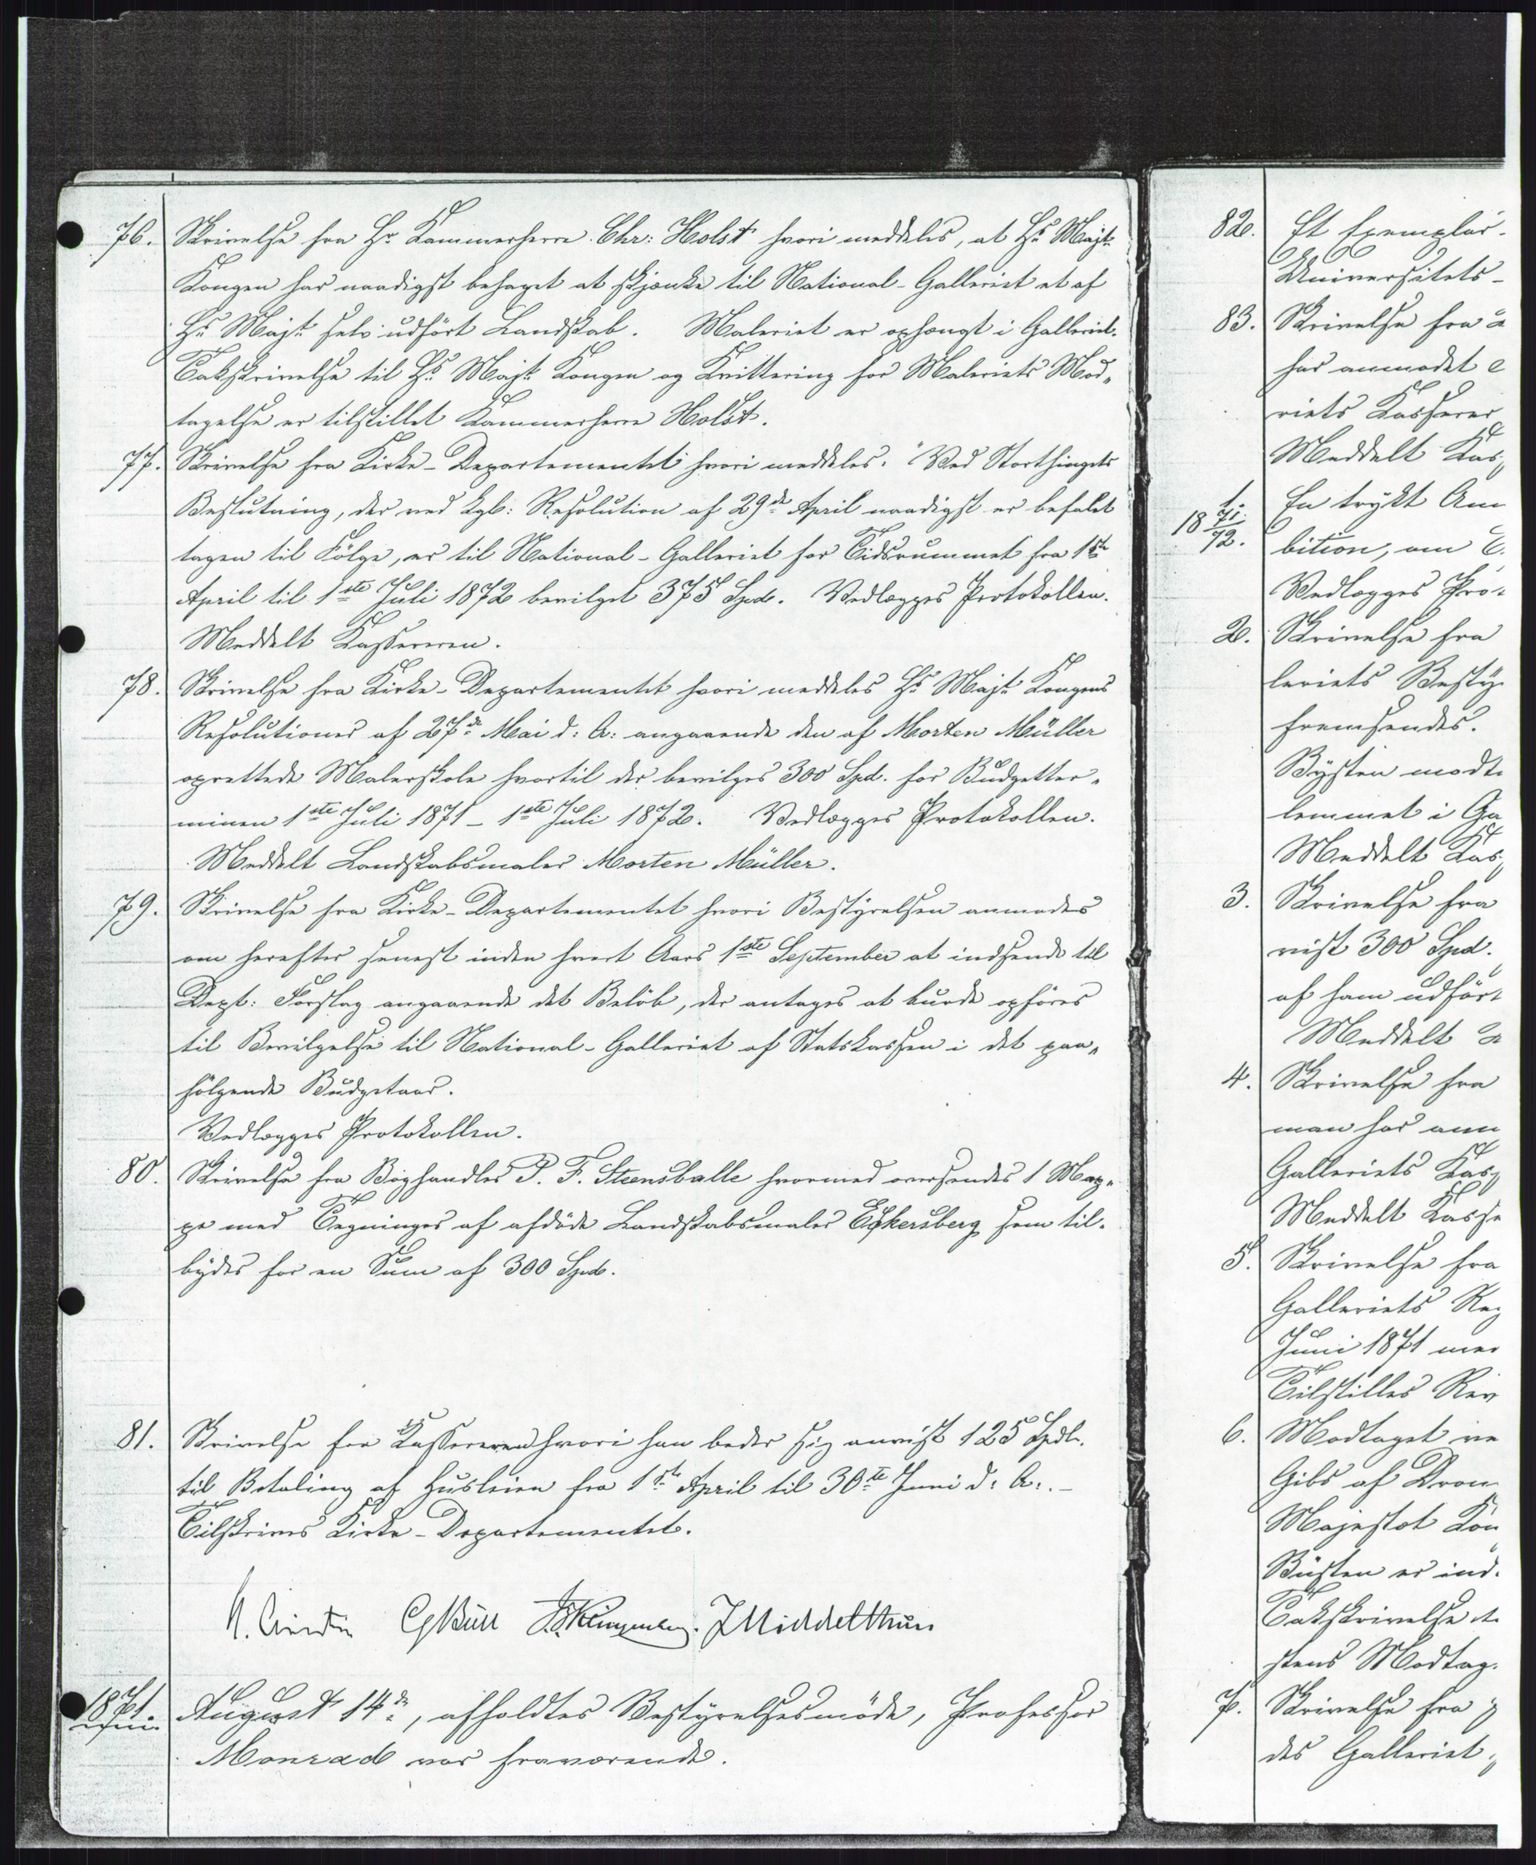 76. Skrivelse fra Hr Kammerherre Chr: Holst hvori meddeles, at Hs Majt
Kongen har naadigst behaget at skjænke til National-Galleriet et af
Hs Majt selv udført Landskab. Maleriet er ophængt i Galleriet.
Takskrivelse til Hs Majt Kongen og Kvittering for Maleriets Mod„
tagelse er tilstillet Kammerherre Holst.
77. Skrivelse fra Kirke-Departementet hvori meddeles. "Ved Storthingets
Beslutning, der ved Kgl: Resolution af 29de April naadigst er befalet
tagen til Følge, er til National-Galleriet for Tidsrummet fra 1ste
April til 1ste Juli 1872 bevilget 375 Spd. Vedlægges Protokollen.
Meddelt Kassereren.
78. Skrivelse fra Kirke-Departementet hvori meddeles Hs Majt Kongens
Resolutioner af 27de Mai d: A: angaaende den af Morten Müller
oprettede Malerskole hvortil der bevilges 300 Spd. for Budgetter„
minen 1ste Juli 1871 – 1ste Juli 1872. Vedlægges Protokollen.
Meddelt Landskabsmaler Morten Müller.
79. Skrivelse fra Kirke-Departementet hvori Bestyrelsen anmodes
om herefter senest inden hvert Aars 1ste September at indsende til
Dept: Forslag angaaende det Beløb, der antages at burde opføres
til Bevilgelse til National-Galleriet af Statskassen i det paa„
følgende Budgetaar.
Vedlægges Protokollen.
80. Skrivelse fra Boghandler P. F. Steensballe hvormed oversendes 1 Map„
pe med Tegninger af afdøde Landskabsmaler Eckersberg som til„
bydes for en Sum af 300 Spd.
81. Skrivelse fra Kassereren hvori han beder sig anvist 125 Spdl.
til Betaling af Husleien fra 1ste April til 30te Juni d: A:. –
Tilskrives Kirke-Departementet.
CGBull JMiddelthun
1871. August 14de, afholdtes Bestyrelsesmøde, Professor
Monrad var fraværende.
82. Et Exemplar
Universitets-
83. Skrivelse fra
har anmodet
riets Kasserer
Meddelt Kas„
1871/72. 1. En trykt
bition, om
Vedlægges Pro
2. Skrivelse fra
leriets Besty
fremsendes.
Bysten modt
lemmet i Ga
Meddelt Kas„
3. Skrivelse fra
vist 300 Spd.
af ham udfør
Meddelt
4. Skrivelse fra
man har anm
Galleriets Kas„
Meddelt Kasse
5. Skrivelse fra
Galleriets Reg
Juni 1871 med
Tilstilles Rev
6. Modtaget
Gibs af Dron
Majestæt Kon
Büsten er ind.
Takskrivelse
stens Modtag.
7. Skrivelse fra
des Galleriet„